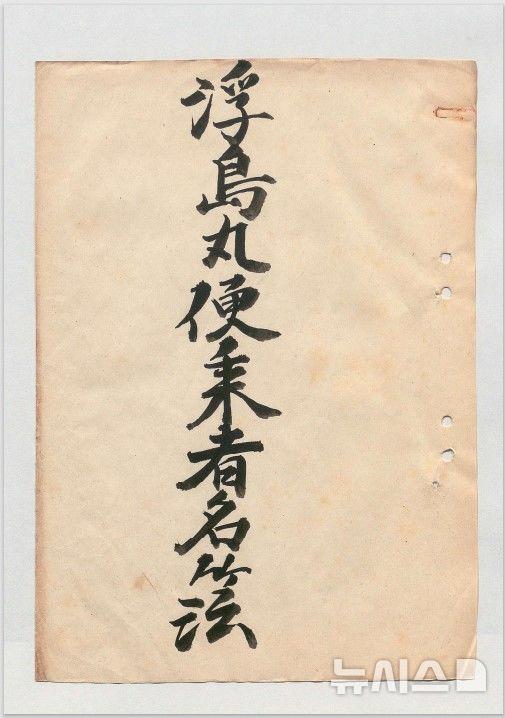 浮島丸便乗者名簿
뉴시스